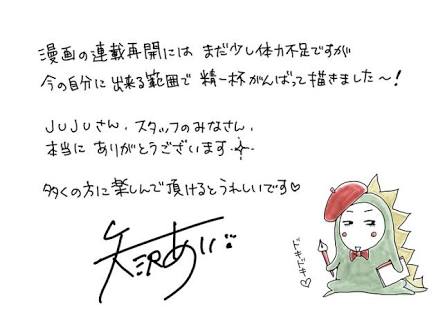 漫画の連載再開には まだ少し体力不足ですが
今の自分に出来る範囲で 精一杯がんばって描きました〜!
JUJUさん、スタッフのみなさん、
本当に ありがとうございます
多くの方に楽しんで頂けるとうれしいです♡
矢沢あい
ドキドキドキ♡